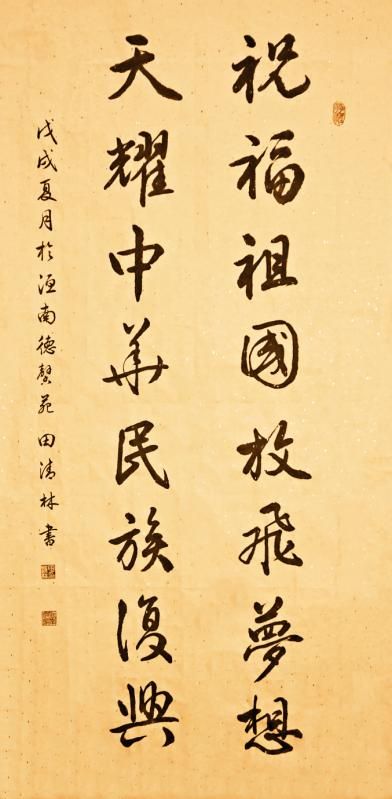 祝福祖國放飛夢想
天耀中華民族復興
戊戌夏月於洹南德馨苑田清林書